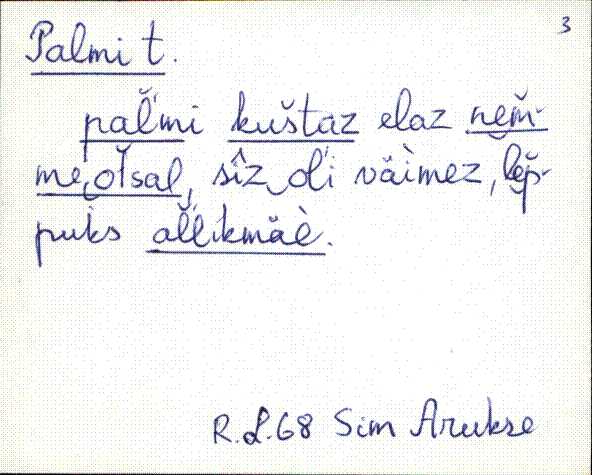 3
Palmi t.
pal̆'mi kuštaz elaz nem̆-
me‿ot̆sal, sîz‿ol'i väìmez, lep̆-
puks al̆l̆ikmäè.
R.L.68 Sim Arukse